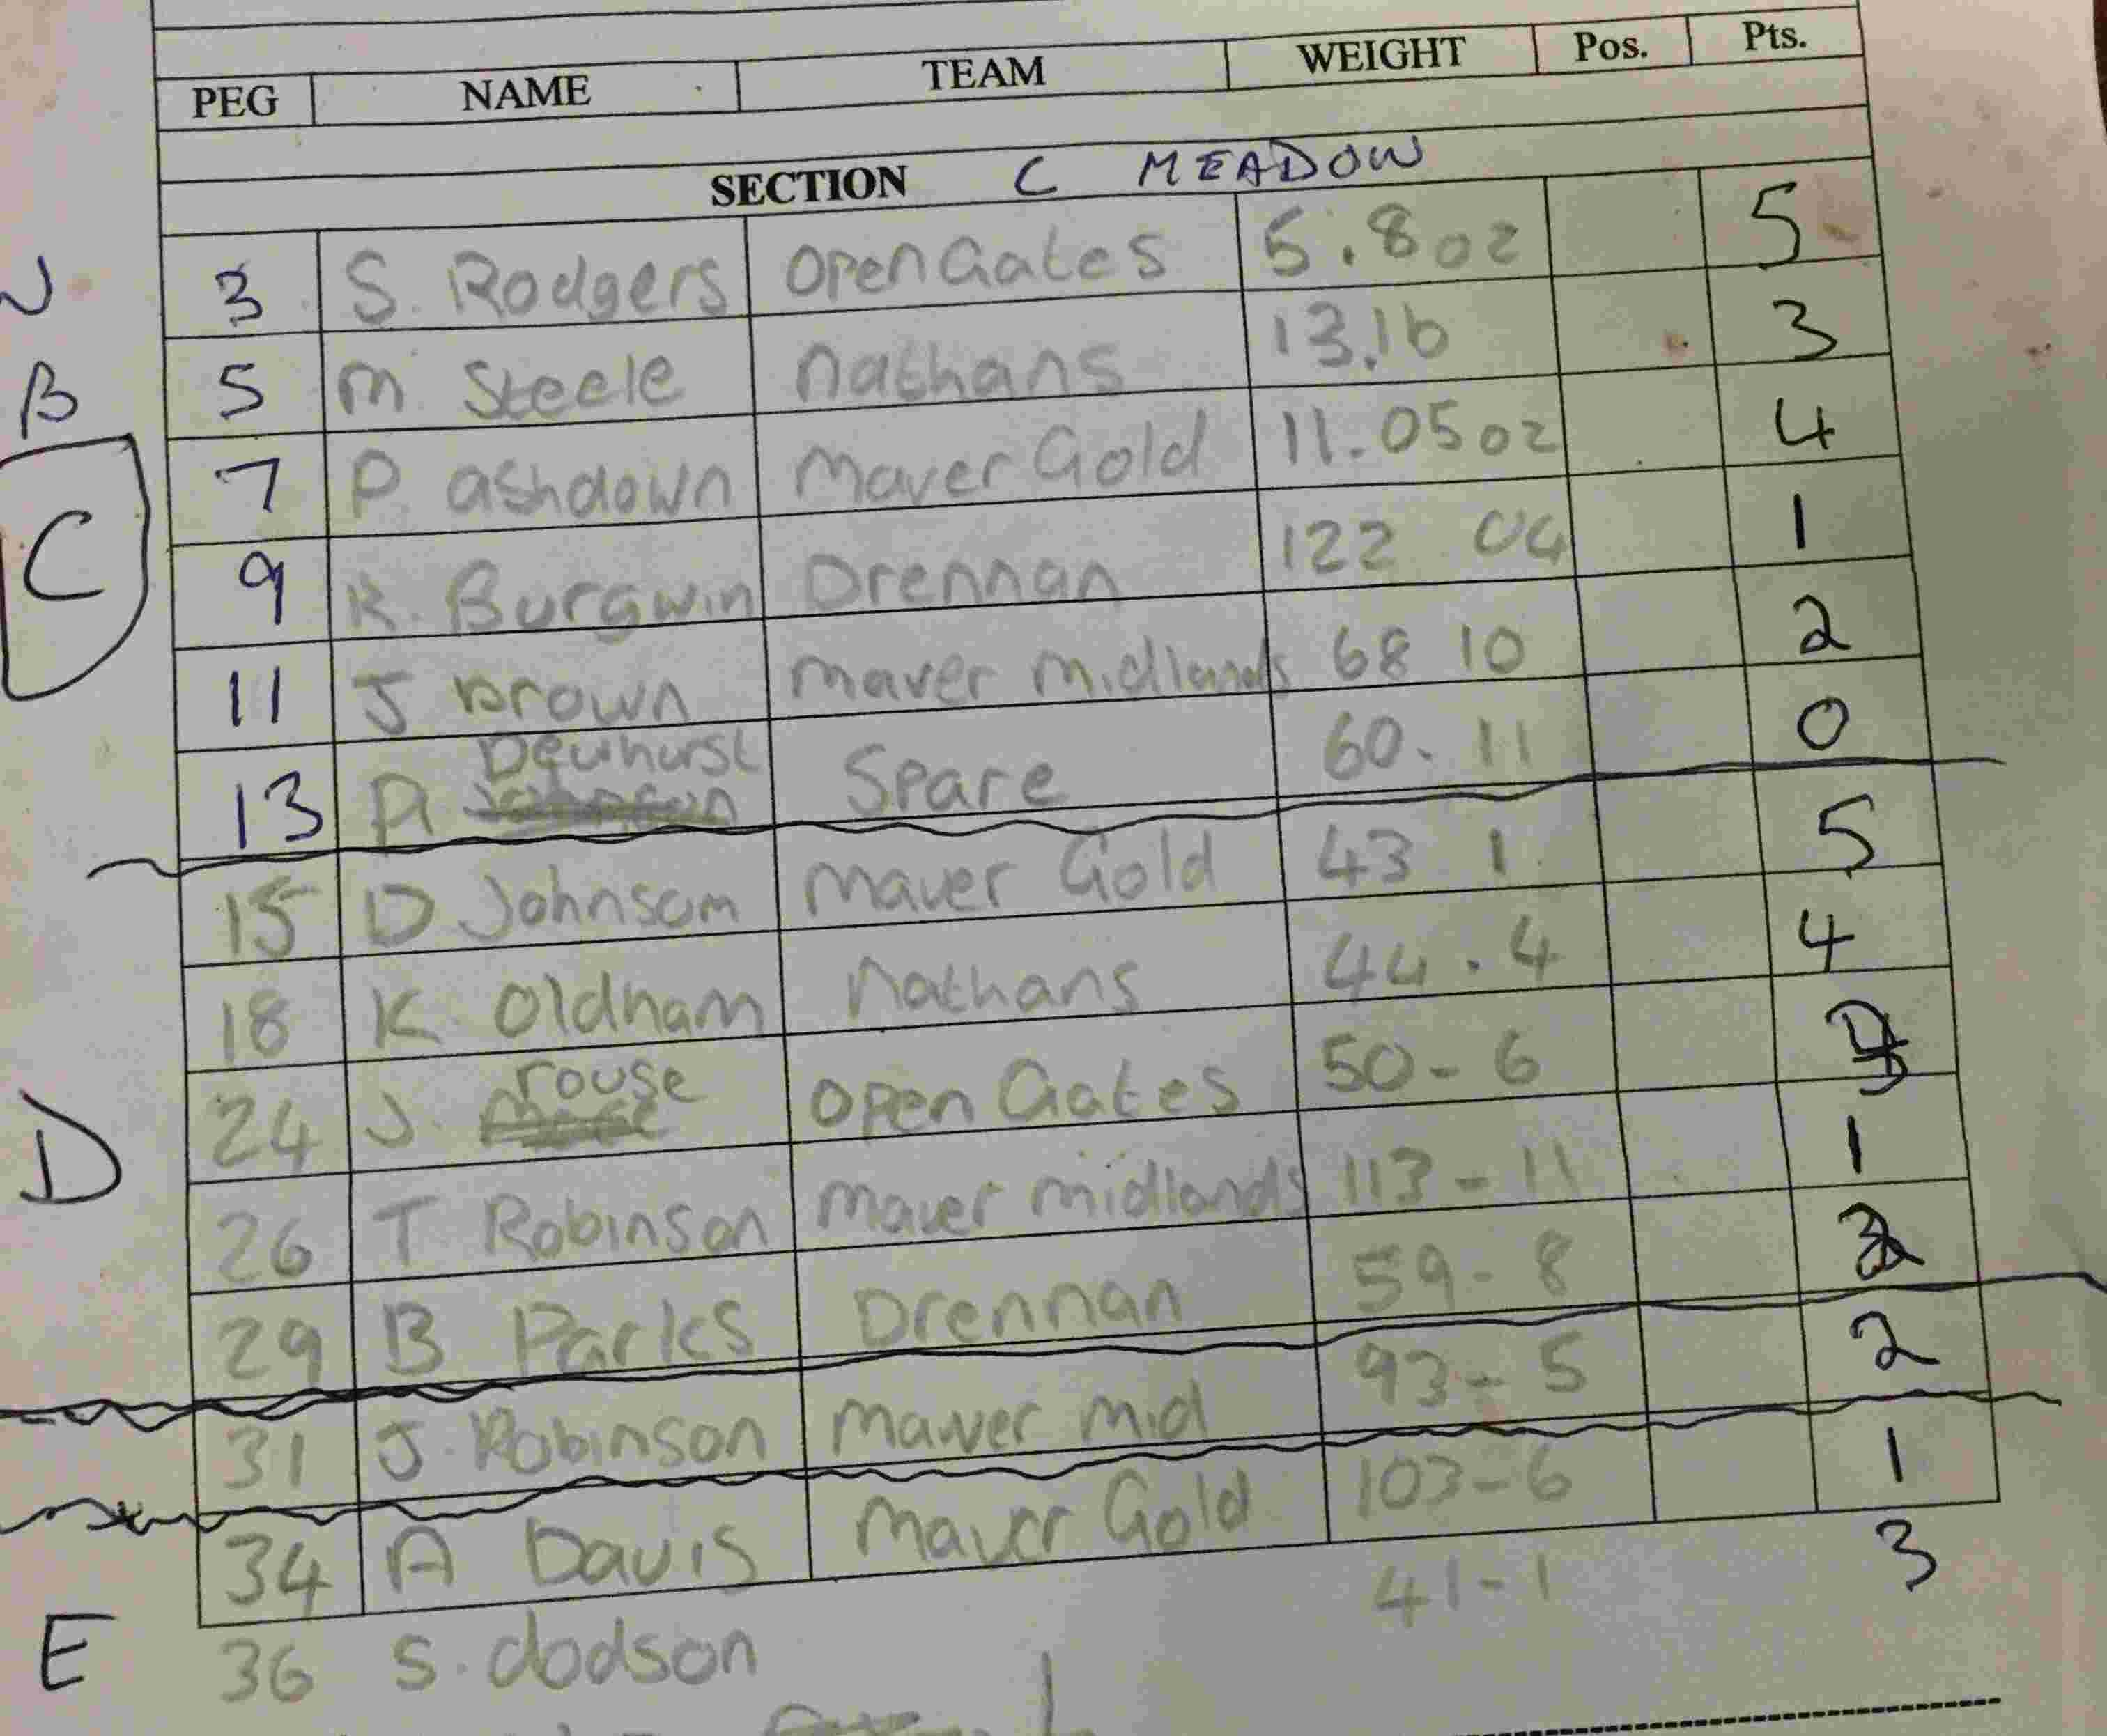 PEG NAME TEAM WEIGHT Pos. Pts.
SECTION C MEADOW
3 S. Rodgers Open Gates 5.8oz 5
B 5 M Steele Nathans 13.1b 3
C 7 P. ashdown Maver Gold 11.05oz 4
9 R. Burgwin Drennan 122 04 1
11 J Brown maver midlands 68 10 2
Dewhurst
13 Spare 60.11 0
15 D Johnsom Maver Gold 43 1 5
18 K. Oldham Nathans 44.4 4
rouse
D 24 J. Open Gates 50-6
26 T Robinson maver midlands 113-11 1
29 B Parks Drennan 59-8
31 J. Robinson Maver mid 93-5 2
34 A Davis Maver Gold 103-6 1
E 36 S. dodson 41-1 3